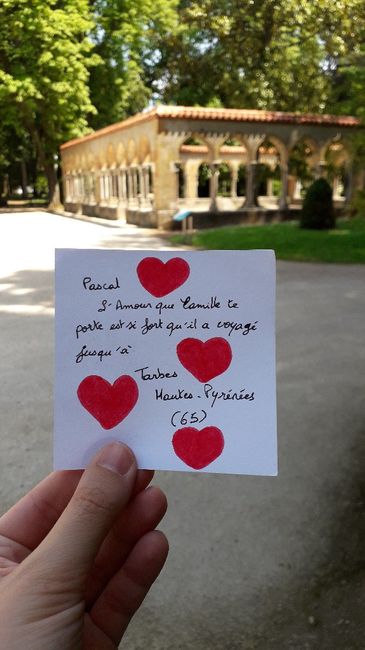 Pascal
L'Amour que Camille te
porte est si fort qu'il a voyagé
jusqu'à
Tarbes
Hautes-Pyrénées
(65)